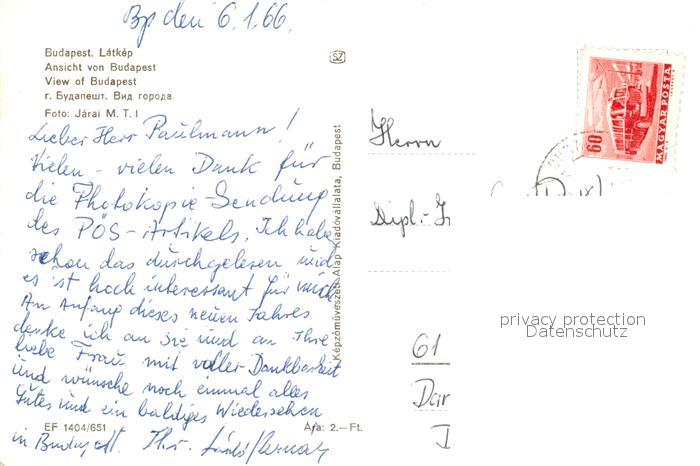 Bp den 6.1.66.
Budapest. Látkép
Ansicht von Budapest
View of Budapest
г. Будапешт. Вид города.
Foto: Járai M. T. I
Lieber Herr Paulmann!
Vielen - vielen Dank für
die Photokopie-Sendung
des PÖS-Artikels. Ich habe
schon das durchgelesen und
es ist hoch interessant für mich
Am Anfang dieses neuen Jahres
denke ich an Sie und an Ihre
liebe Frau mit voller Dankbarkeit
und wünsche noch einmal alles
Gutes und ein baldiges Wiedersehen
in Budapest. Ihr László
EF 1404/651
Ára: 2.—Ft.
Képzőművészeti Alap Kiadóvállalata, Budapest
SZ
60
MAGYAR POSTA
Herrn
Dipl.-I
61
Dar
privacy protection
Datenschutz